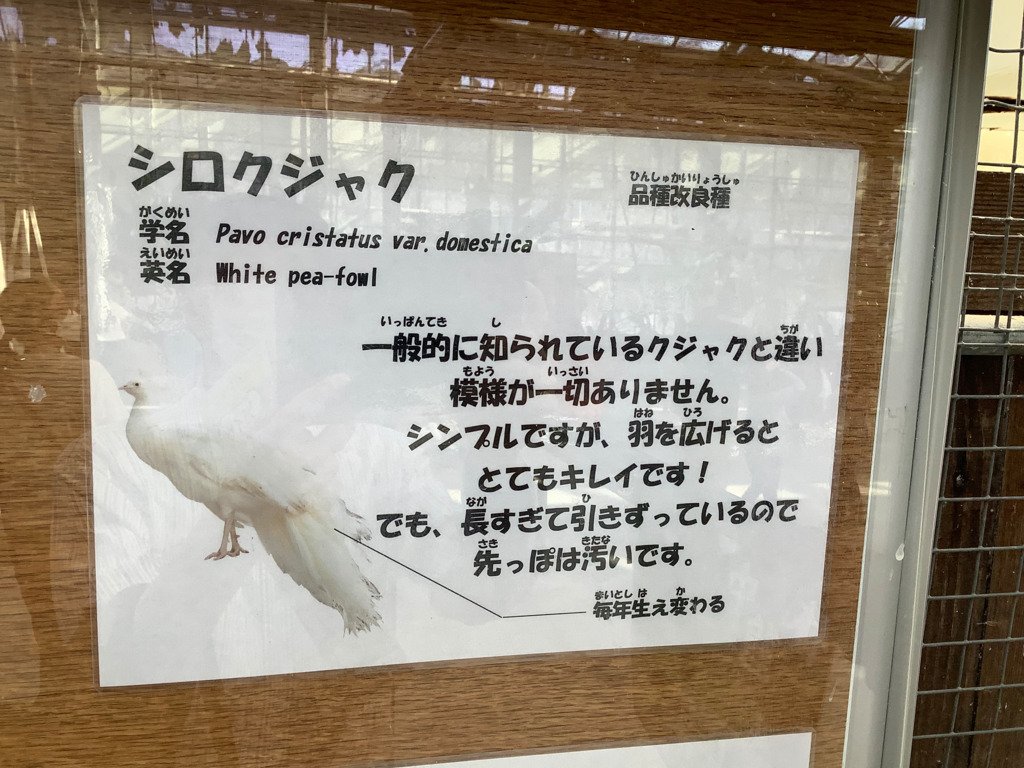 シロクジャク
ひんしゅかいりょうしゅ
品種改良種
がくめい
学名 Pavo cristatus var.domestica
えいめい
英名 White pea-fowl
いっぱんてき し ちが
一般的に知られているクジャクと違い
もよう いっさい
模様が一切ありません。
はね ひろ
シンプルですが、羽を広げると
とてもキレイです！
なが ひ
でも、長すぎて引きずっているので
さき きたな
先っぽは汚いです。
まいとし は か
毎年生え変わる